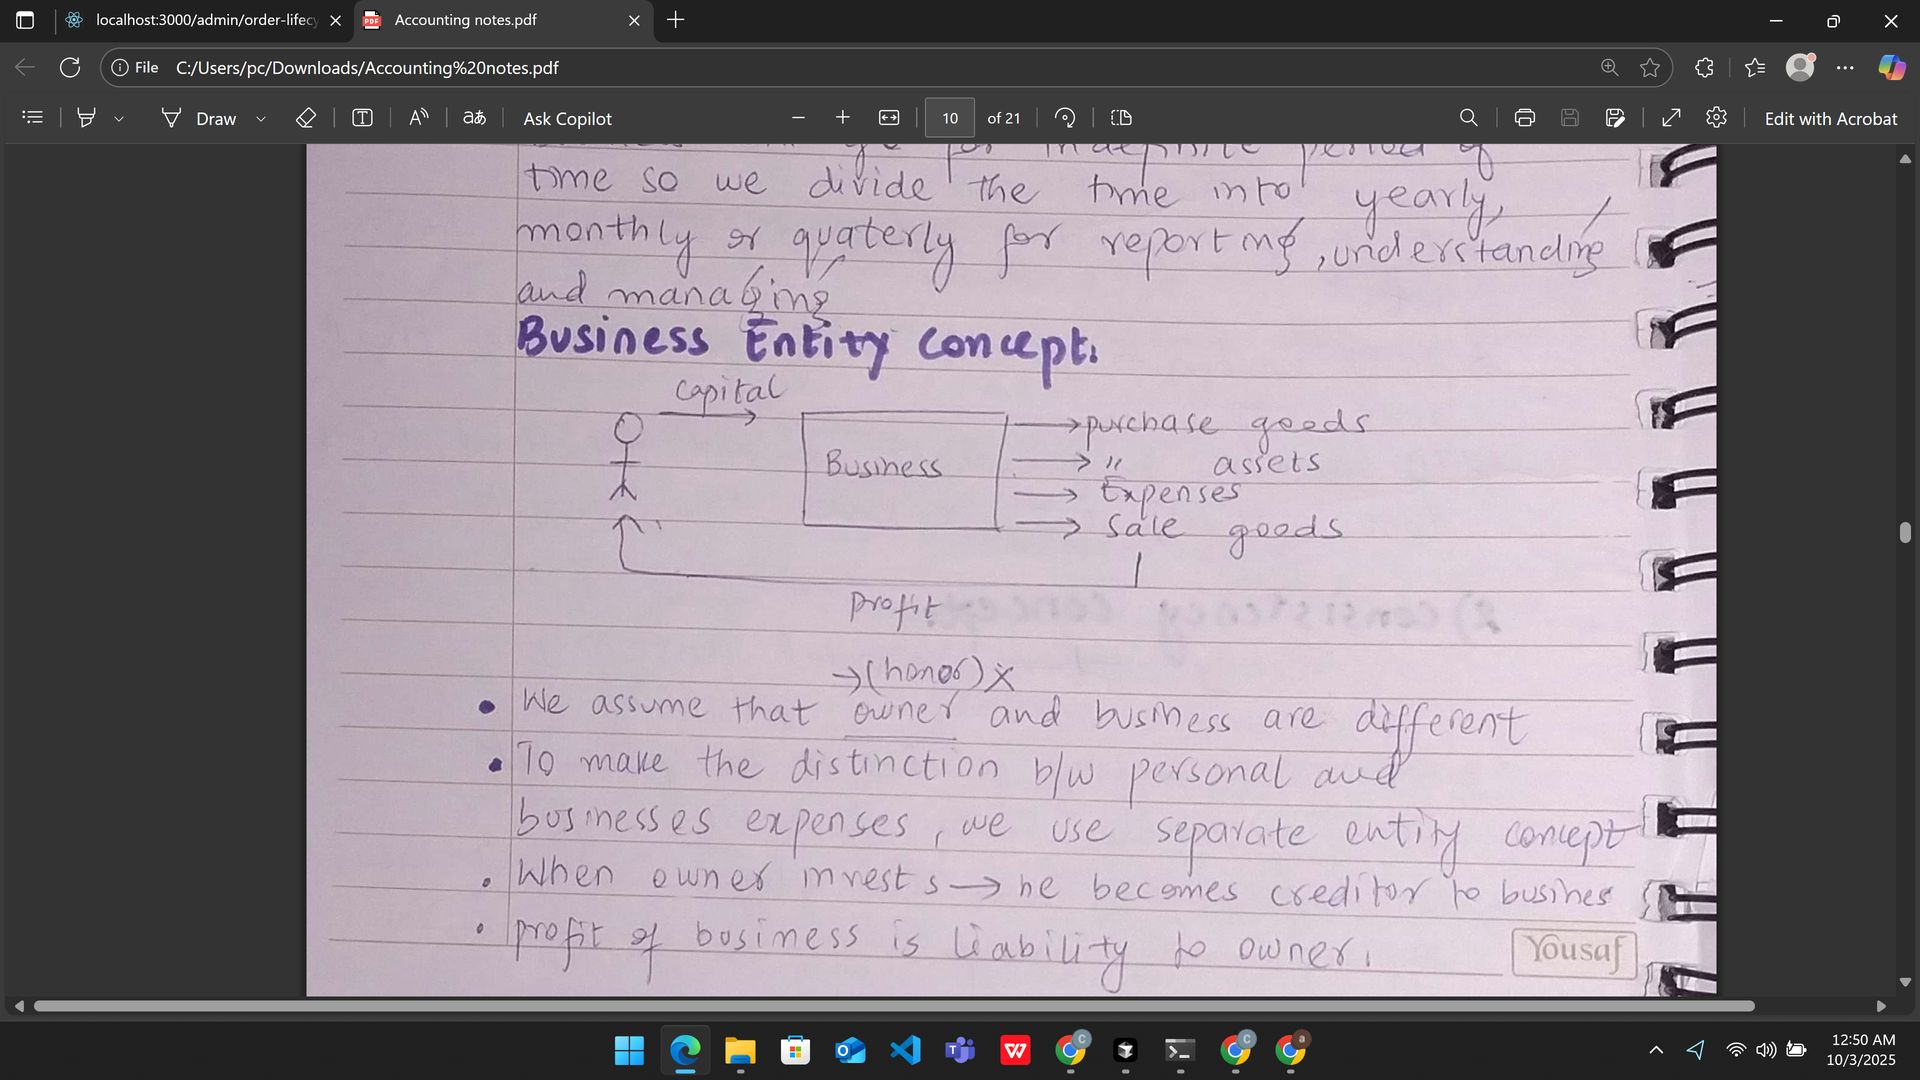 localhost:3000/admin/order-lifecy
Accounting notes.pdf
File
C:/Users/pc/Downloads/Accounting%20notes.pdf
Draw
Ask Copilot
10 of 21
Edit with Acrobat
for indefinite period of
time so we divide the time into yearly,
monthly or quaterly for reporting, understanding
and managing
Business Entity concept.
capital
Business
→ purchase goods
→ " assets
→ Expenses
→ Sale goods
profit
→(honor) x
• We assume that owner and business are different
• To make the distinction b/w personal and
businesses expenses, we use separate entity concept
• When owner invests → he becomes creditor to busines
• profit of business is liability to owner.
Yousaf
12:50 AM
10/3/2025